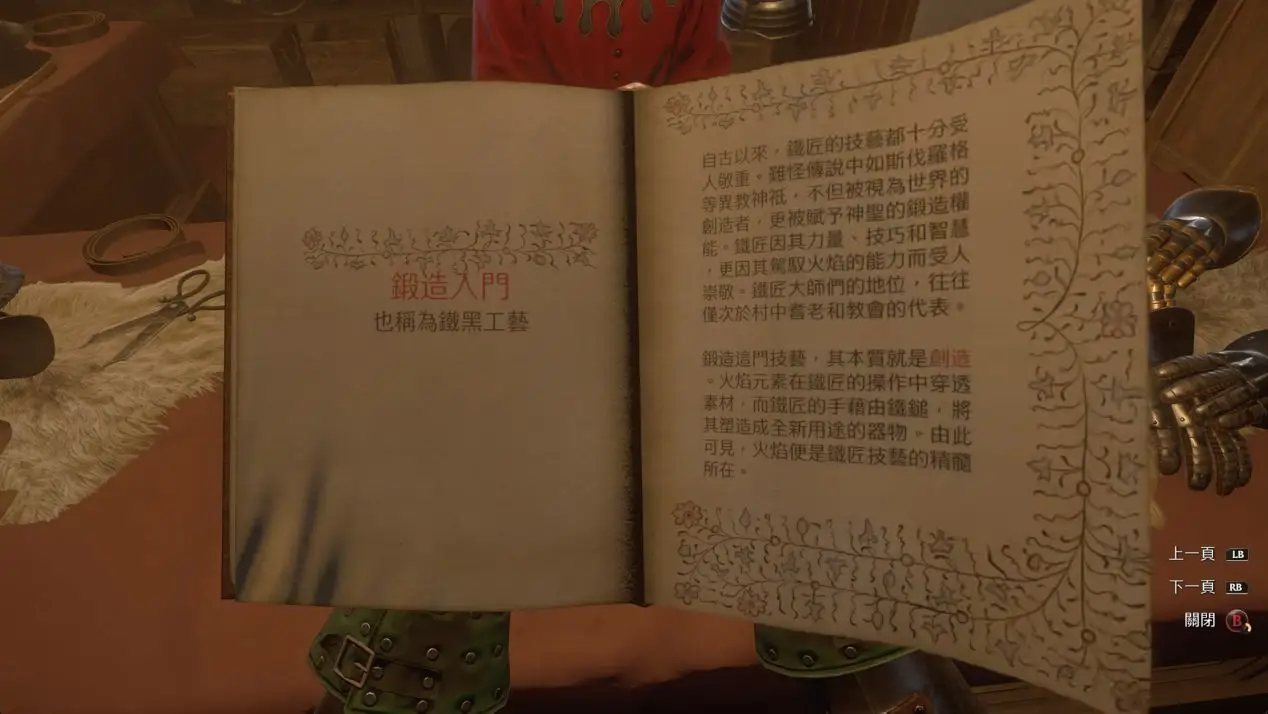 鍛造入門
也稱為鐵黑工藝
自古以來，鐵匠的技藝都十分受
人敬重。難怪傳說中如斯伐羅格
等異教神祇，不但被視為世界的
創造者，更被賦予神聖的鍛造權
能。鐵匠因其力量、技巧和智慧
，更因其駕馭火焰的能力而受人
崇敬。鐵匠大師們的地位，往往
僅次於村中耆老和教會的代表。
鍛造這門技藝，其本質就是創造
。火焰元素在鐵匠的操作中穿透
素材，而鐵匠的手藉由鐵鎚，將
其塑造成全新用途的器物。由此
可見，火焰便是鐵匠技藝的精髓
所在。
上一頁 LB
下一頁 RB
關閉 B